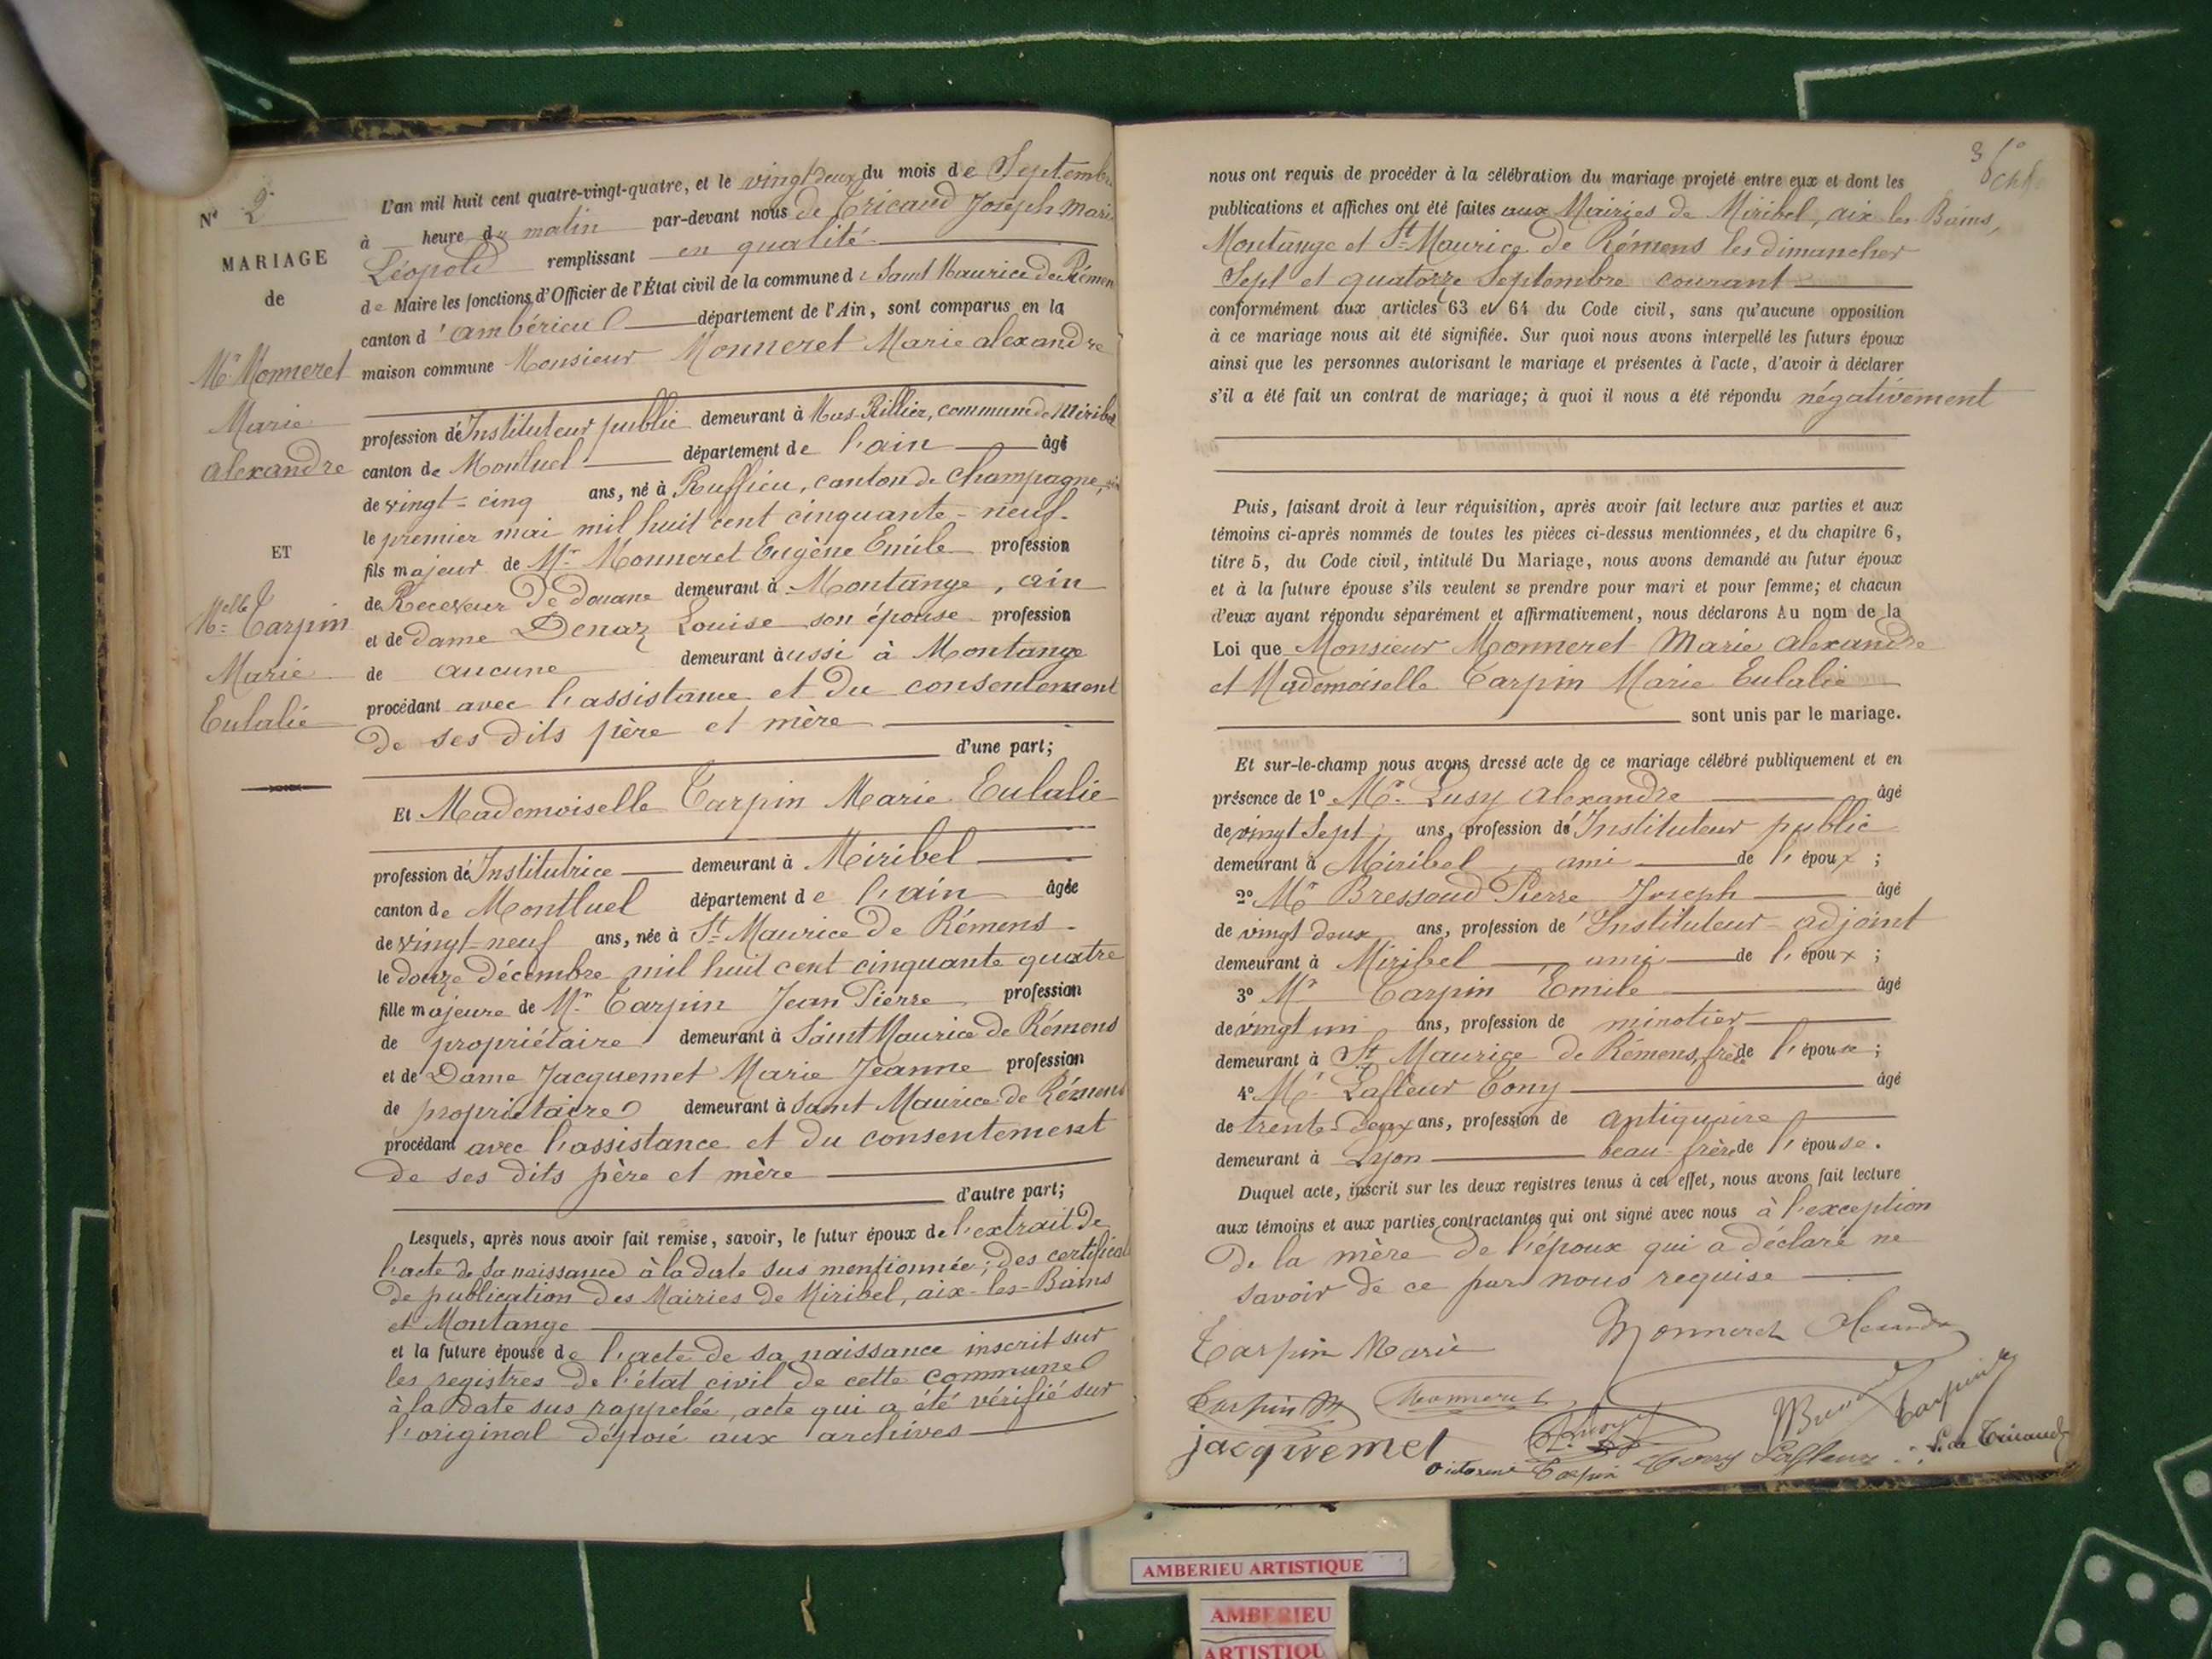 N° 2
MARIAGE
de
Mr Monneret
Marie
alexandre
ET
Melle Tarpin
Marie
Eulalie
L'an mil huit cent quatre-vingt-quatre, et le vingt deux du mois de Septembre
à heure du matin par-devant nous de Tricaud Joseph Marie
Léopold remplissant en qualité
de Maire les fonctions d'Officier de l'État civil de la commune de Saint Maurice de Rémens
canton d'ambérieu département de l'Ain, sont comparus en la
maison commune Monsieur Monneret Marie alexandre
profession d'Instituteur public demeurant à Mas-Rillier, commune de Miribel
canton de Montluel département de l'ain âgé
de vingt-cinq ans, né à Ruffieu, canton de Champagne,
le premier mai mil huit cent cinquante-neuf
fils majeur de Mr Monneret Eugène Emile profession
de Receveur de douane demeurant à Montange, ain
et de dame Denaz Louise son épouse profession
de aucune demeurant aussi à Montange
procédant avec l'assistance et du consentement
de ses dits père et mère
d'une part;
Et Mademoiselle Tarpin Marie Eulalie
profession d'Institutrice demeurant à Miribel
canton de Montluel département de l'ain âgée
de vingt-neuf ans, née à St Maurice de Rémens
le douze décembre mil huit cent cinquante quatre
fille majeure de Mr Tarpin Jean Pierre profession
de propriétaire demeurant à Saint Maurice de Rémens
et de Dame Jacquemet Marie Jeanne profession
de propriétaire demeurant à Saint Maurice de Rémens
procédant avec l'assistance et du consentement
de ses dits père et mère
d'autre part;
Lesquels, après nous avoir fait remise, savoir, le futur époux de l'extrait de
l'acte de sa naissance à la date sus mentionnée; des certificats
de publication des Mairies de Miribel, aix-les-Bains
et Montange
et la future épouse de l'acte de sa naissance inscrit sur
les registres de l'état civil de cette commune
à la date sus rappelée, acte qui a été vérifié sur
l'original déposé aux archives
nous ont requis de procéder à la célébration du mariage projeté entre eux et dont les
publications et affiches ont été faites aux Mairies de Miribel, aix les Bains,
Montange et St Maurice de Rémens les dimanches
Sept et quatorze Septembre courant
conformément aux articles 63 et 64 du Code civil, sans qu'aucune opposition
à ce mariage nous ait été signifiée. Sur quoi nous avons interpellé les futurs époux
ainsi que les personnes autorisant le mariage et présentes à l'acte, d'avoir à déclarer
s'il a été fait un contrat de mariage; à quoi il nous a été répondu négativement
Puis, faisant droit à leur réquisition, après avoir fait lecture aux parties et aux
témoins ci-après nommés de toutes les pièces ci-dessus mentionnées, et du chapitre 6,
titre 5, du Code civil, intitulé Du Mariage, nous avons demandé au futur époux
et à la future épouse s'ils veulent se prendre pour mari et pour femme; et chacun
d'eux ayant répondu séparément et affirmativement, nous déclarons Au nom de la
Loi que Monsieur Monneret Marie Alexandre
et Mademoiselle Tarpin Marie Eulalie
sont unis par le mariage.
Et sur-le-champ nous avons dressé acte de ce mariage célébré publiquement et en
présence de 1° Mr Lusy Alexandre âgé
de vingt Sept ans, profession d'Instituteur public
demeurant à Miribel, ami de l'époux;
2° Mr Bressoud Pierre Joseph âgé
de vingt deux ans, profession de Instituteur-adjoint
demeurant à Miribel, ami de l'époux;
3° Mr Tarpin Emile âgé
de vingt un ans, profession de minotier
demeurant à St Maurice de Rémens, frère de l'épouse;
4° Mr Lafleur Tony âgé
de trente-deux ans, profession de antiquaire
demeurant à Lyon beau-frère de l'épouse.
Duquel acte, inscrit sur les deux registres tenus à cet effet, nous avons fait lecture
aux témoins et aux parties contractantes qui ont signé avec nous à l'exception
de la mère de l'époux qui a déclaré ne
savoir de ce par nous requise
Tarpin Marie Monneret Alexandre
Tarpin M Monneret Tarpin
jacquemet Victorine Tarpin Tony Lafleur L. de Tricaud
AMBERIEU ARTISTIQUE
AMBERIEU
ARTISTIQU